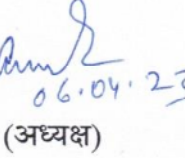 06.04.23
(अध्यक्ष)